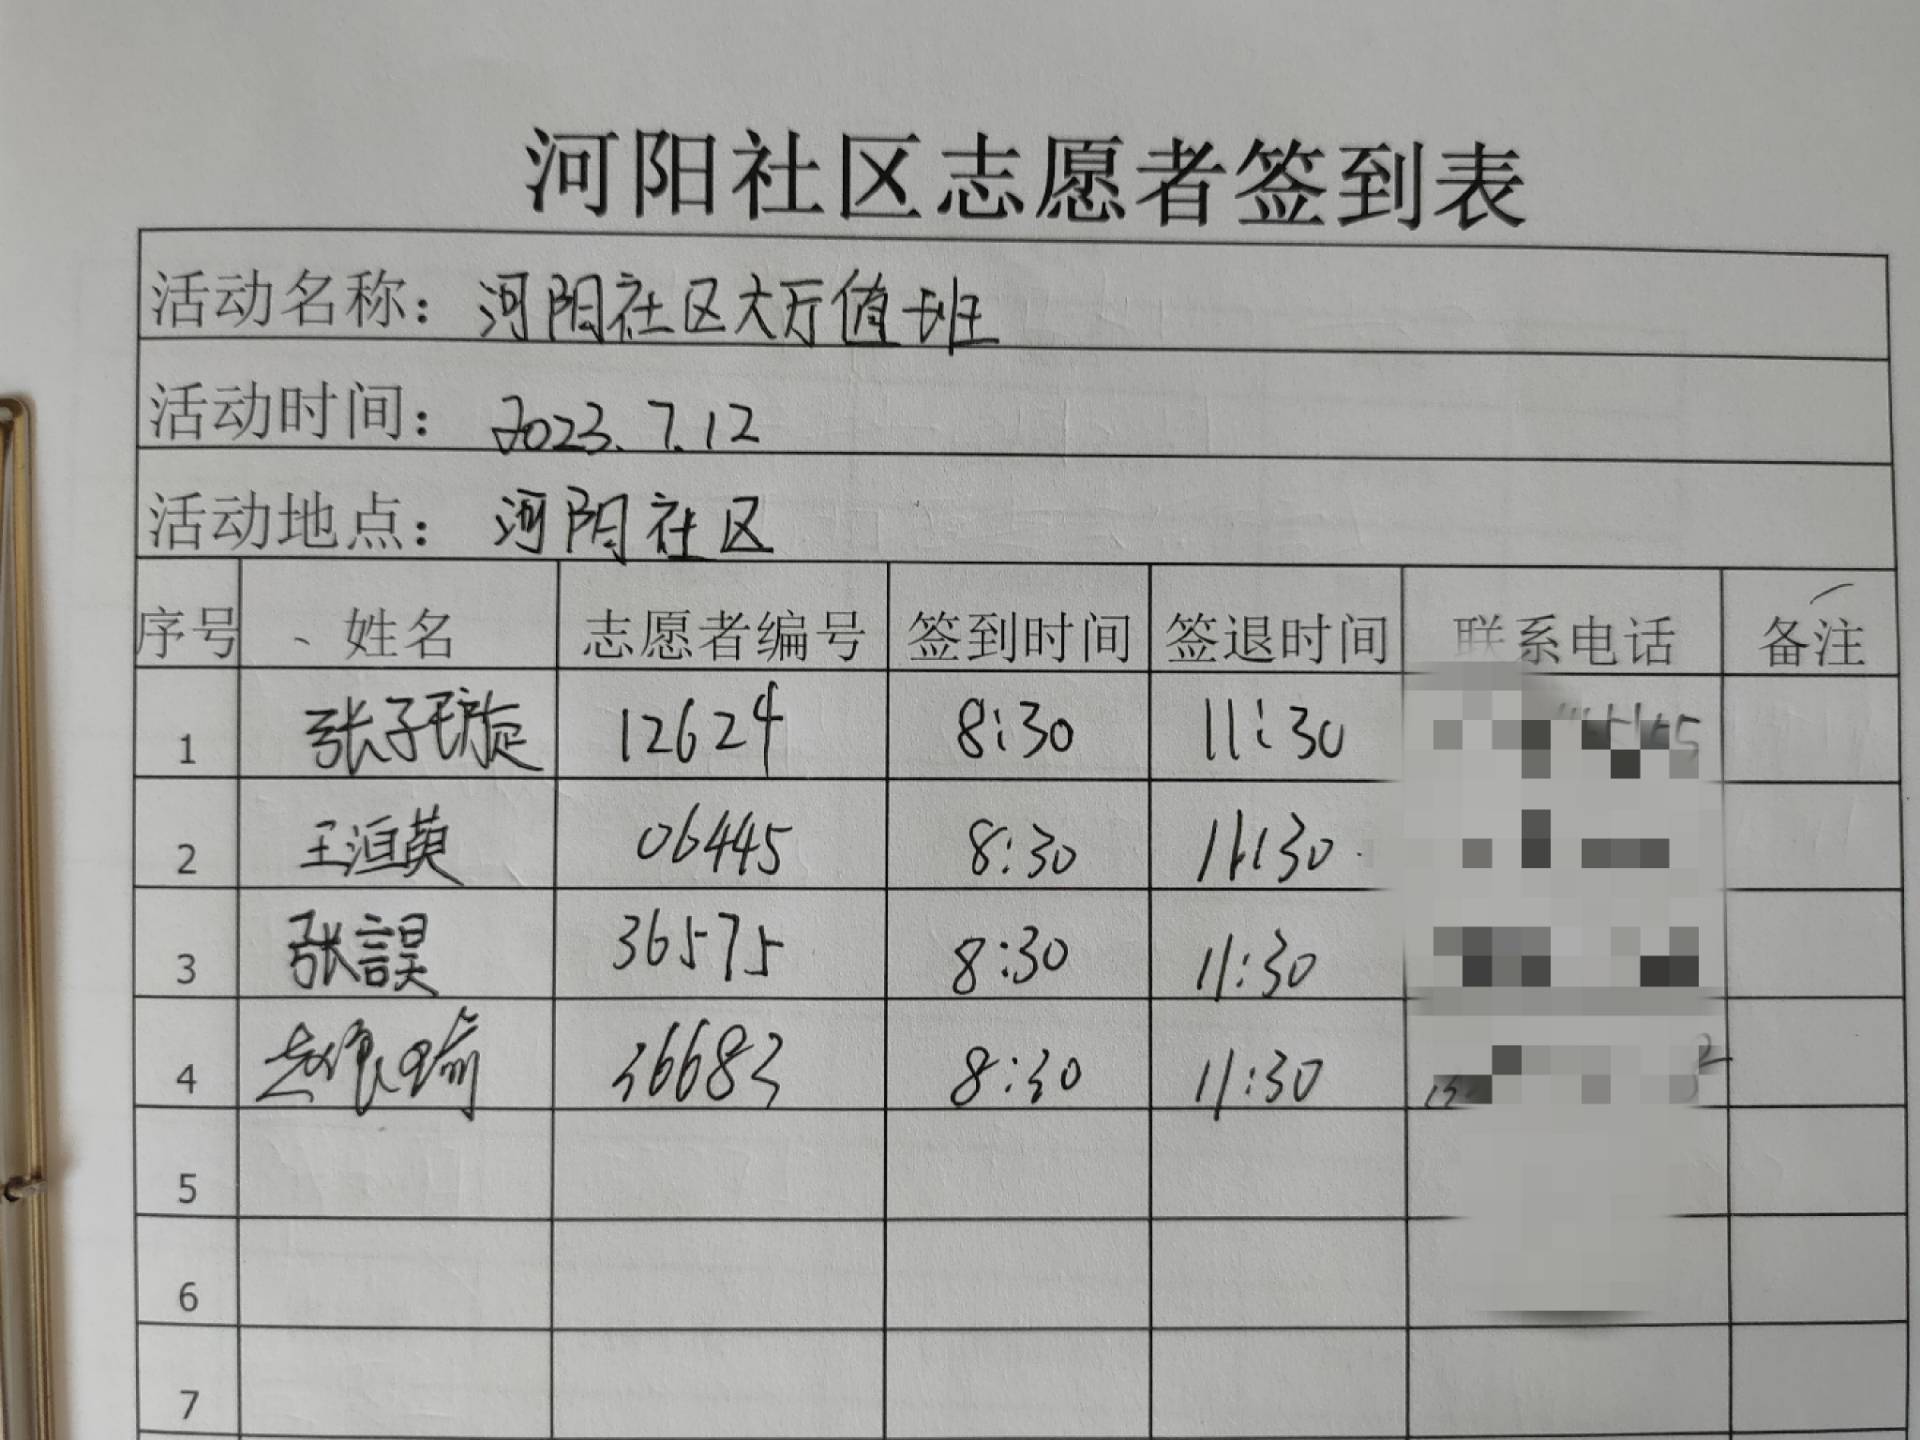 河阳社区志愿者签到表
活动名称：河阳社区大厅值班
活动时间：2023.7.12
活动地点：河阳社区
序号 姓名 志愿者编号 签到时间 签退时间 联系电话 备注
1 张子璇 12624 8:30 11:30
2 王洹英 06445 8:30 11:30
3 张 36575 8:30 11:30
4 赵 36683 8:30 11:30
5
6
7